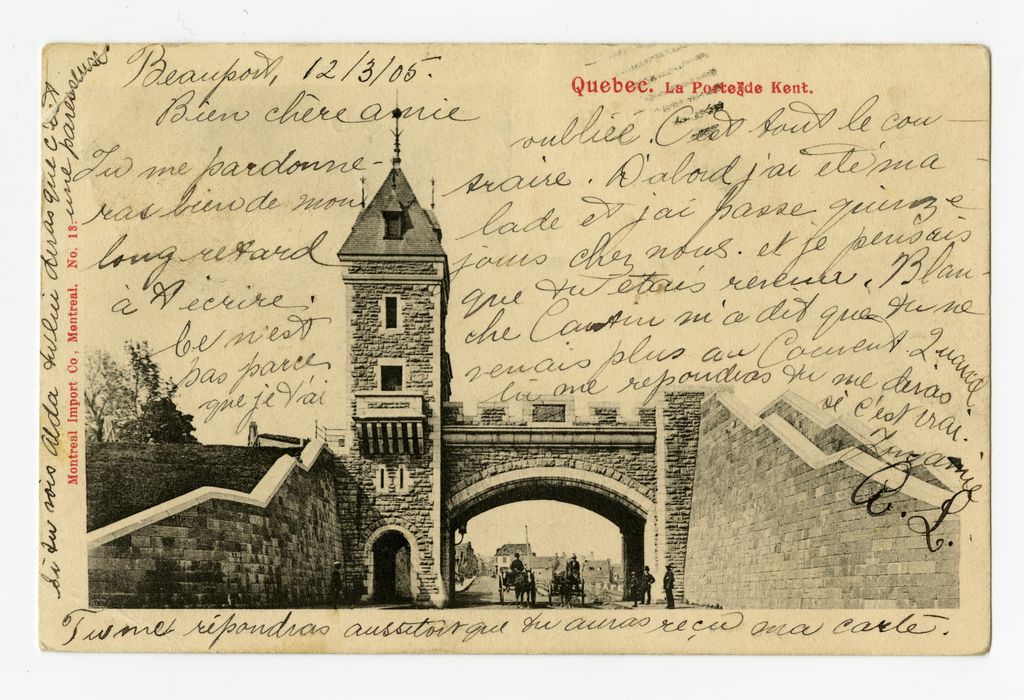 Beauport, 12/3/05.
Bien chère amie
Tu me pardonne-
ras bien de mon
long retard
à t'écrire.
Ce n'est
pas parce
que je t'ai
Quebec. La Porte de Kent.
oubliée. C'est tout le con-
traire. D'abord j'ai été ma
lade et j'ai passé quinze
jours chez nous. et je pensais
que tu étais revenue. Blan-
che Cantin m'a dit que tu ne
venais plus au Couvent Quand
tu me répondras tu me diras
si c'est vrai.
Ton amie
C. L.
Tu me répondras aussitôt que tu auras reçu ma carte.
Si tu vois Alda tu lui diras que c'est
une paresseuse
Montreal Import Co, Montreal. No. 13.